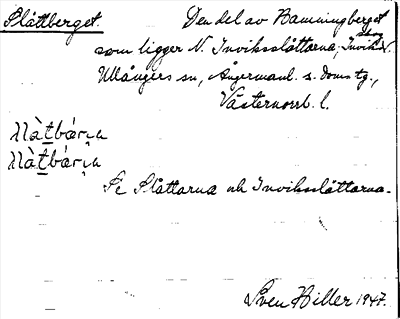 Slåttberget. Den del av Bamningberget
som ligger N. Inviksslåttarna, Invik
Ullångers sn, Ångermanl. s. doms tg.,
Västernorrl. l.
Se Slåttarna och Inviksslåttarna.
Sven Hiller 1947.